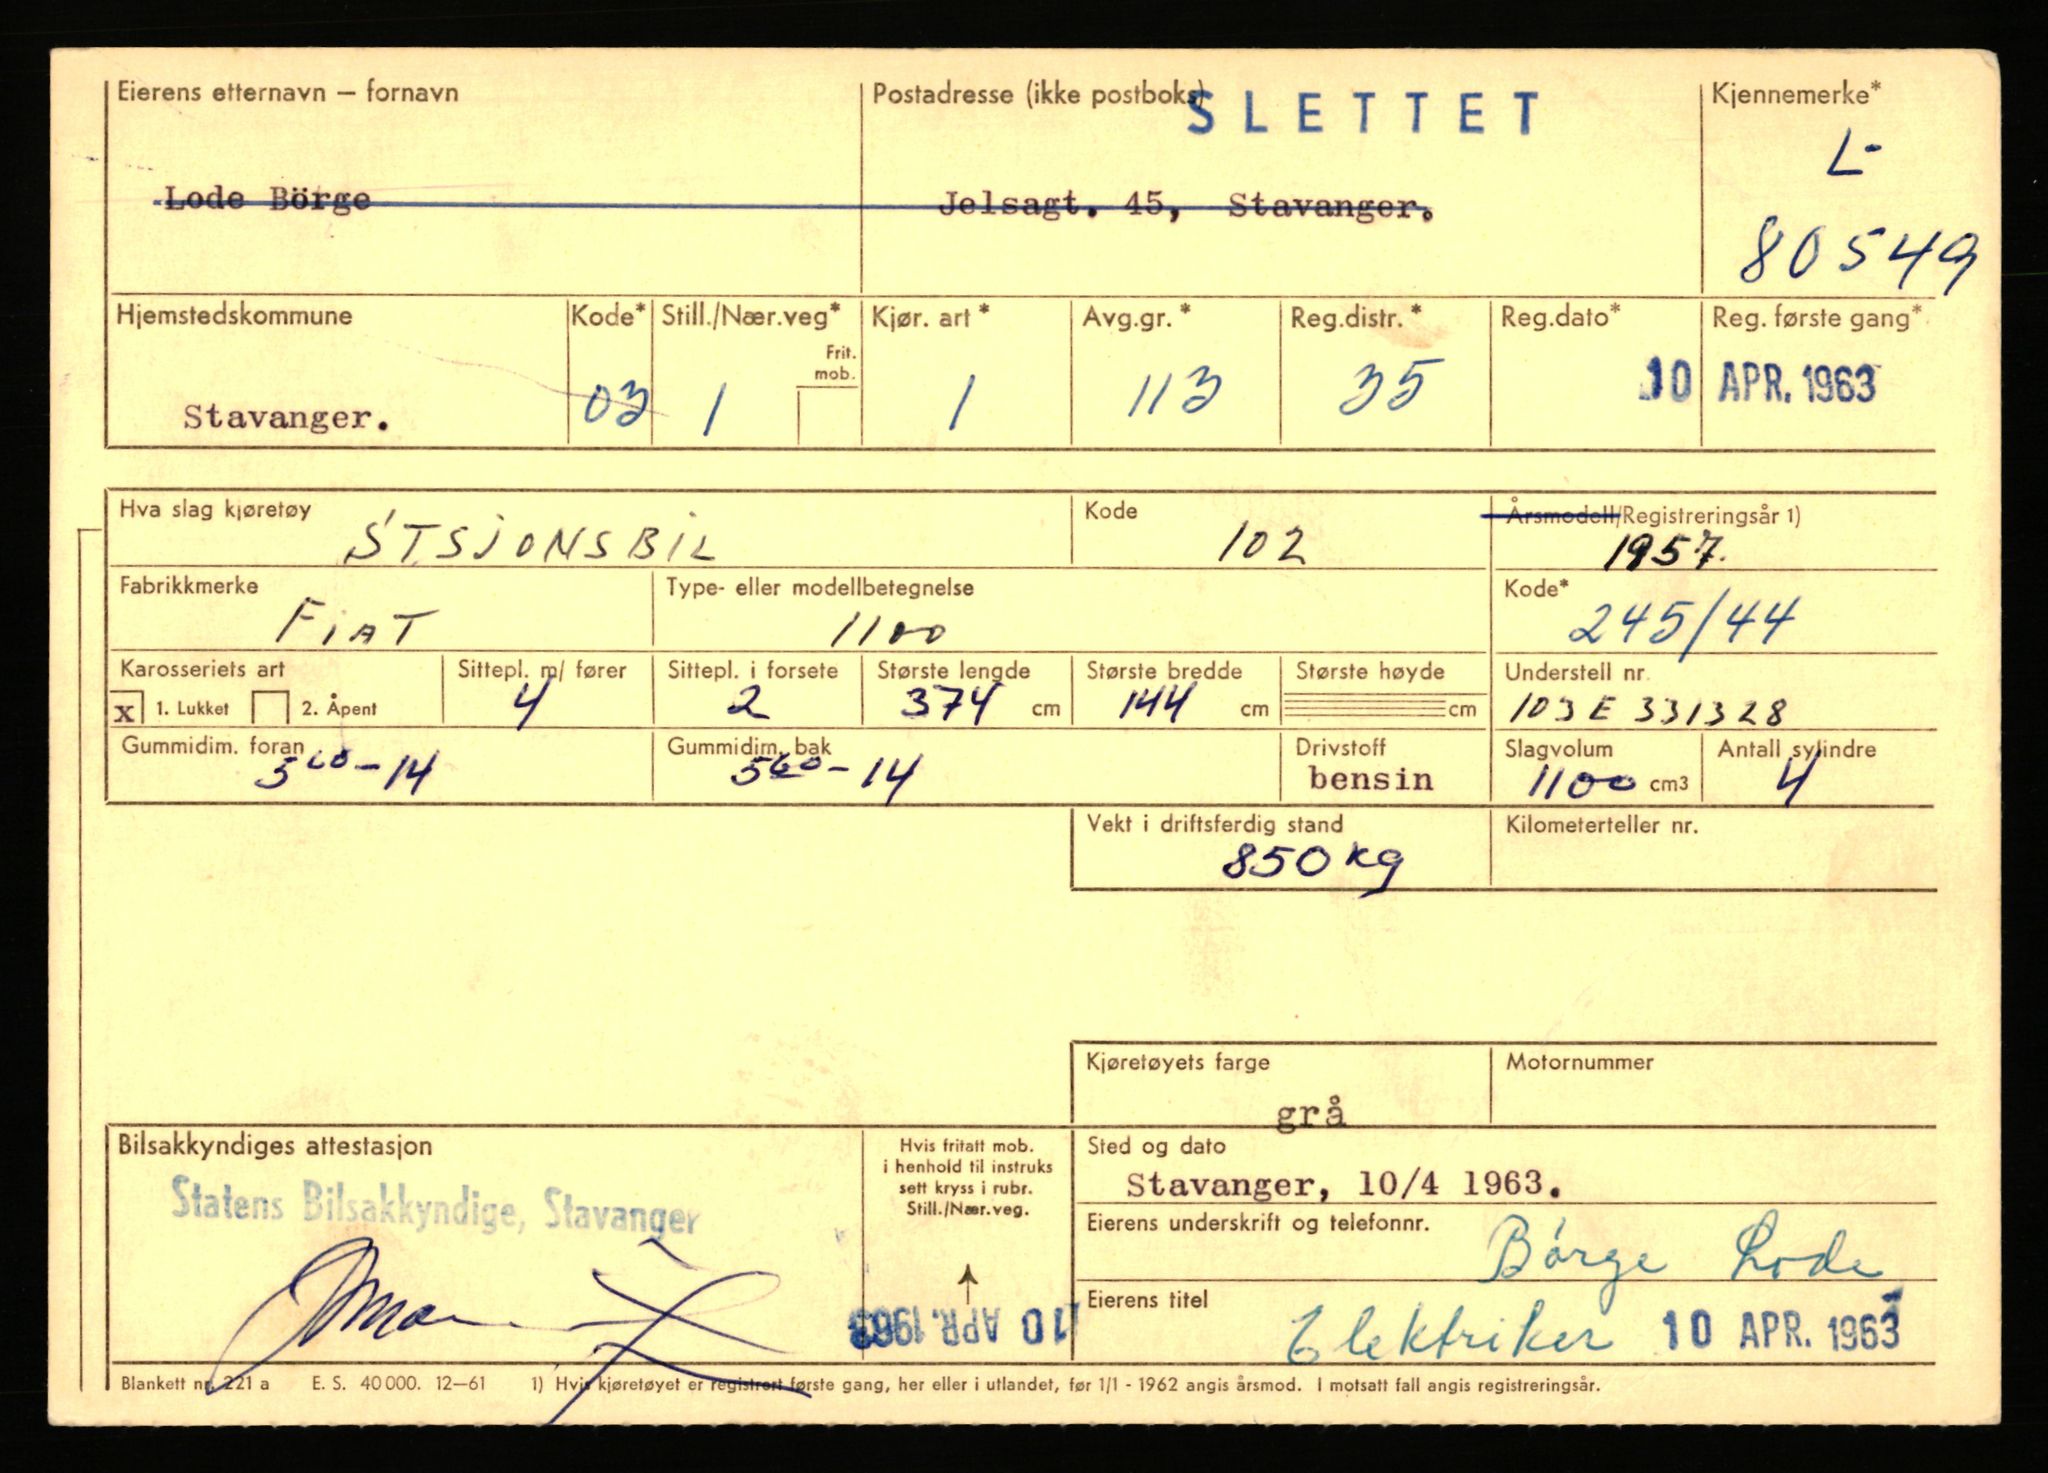 Eierens etternavn — fornavn
Postadresse (ikke postboks)
SLETTET
Kjennemerke*
L-
80549
Lode Börge
Jelsagt. 45, Stavanger.
Hjemstedskommune
Kode*
Still./Nær.veg*
Frit. mob.
Kjør. art *
Avg.gr. *
Reg.distr. *
Reg.dato*
Reg. første gang*
Stavanger.
03
1
1
113
35
10 APR. 1963
Hva slag kjøretøy
STSJONSBIL
Kode
102
Årsmodell/Registreringsår 1)
1957.
Fabrikkmerke
FiAT
Type- eller modellbetegnelse
1100
Kode*
245/44
Karosseriets art
x 1. Lukket 2. Åpent
Sittepl. m/ fører
4
Sittepl. i forsete
2
Største lengde
374 cm
Største bredde
144 cm
Største høyde
cm
Understell nr.
103 E 331328
Gummidim. foran
560-14
Gummidim. bak
560-14
Drivstoff
bensin
Slagvolum
1100 cm3
Antall sylindre
4
Vekt i driftsferdig stand
850 kg
Kilometerteller nr.
Kjøretøyets farge
grå
Motornummer
Bilsakkyndiges attestasjon
Statens Bilsakkyndige, Stavanger
Hvis fritatt mob.
i henhold til instruks
sett kryss i rubr.
Still./Nær.veg.
10 APR. 1963
Sted og dato
Stavanger, 10/4 1963.
Eierens underskrift og telefonnr.
Börge Lode
Eierens titel
Elektriker
10 APR. 1963
Blankett nr. 221 a E. S. 40 000. 12—61 1) Hvis kjøretøyet er registrert første gang, her eller i utlandet, før 1/1 - 1962 angis årsmod. I motsatt fall angis registreringsår.